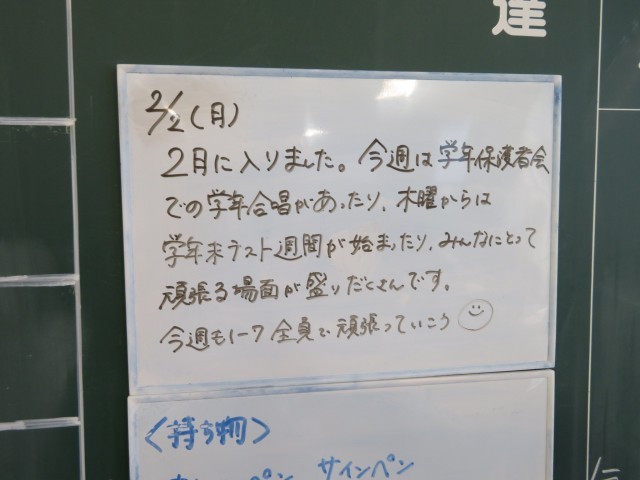 達
2/2(月)
2月に入りました。今週は学年保護者会
での学年合唱があったり、木曜からは
学年末テスト週間が始まったり、みんなにとって
頑張る場面が盛りだくさんです。
今週も1-7 全員で頑張っていこう
〈持ち物〉
ペン サインペン